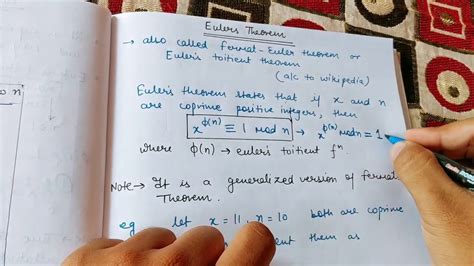 Eulers Theorem
→ also called fermat-Euler theorem or
Euler's totient theorem
(alc to wikipedia)
Euler's theorem states that if x and n
are coprime positive integers, then
x^ϕ(n) ≡ 1 mod n → x^ϕ(n) mod n = 1
where ϕ(n) → euler's totient fⁿ.
Note → It is a generalized version of fermat
Theorem.
eg let x = 11, n = 10 both are coprime
them as